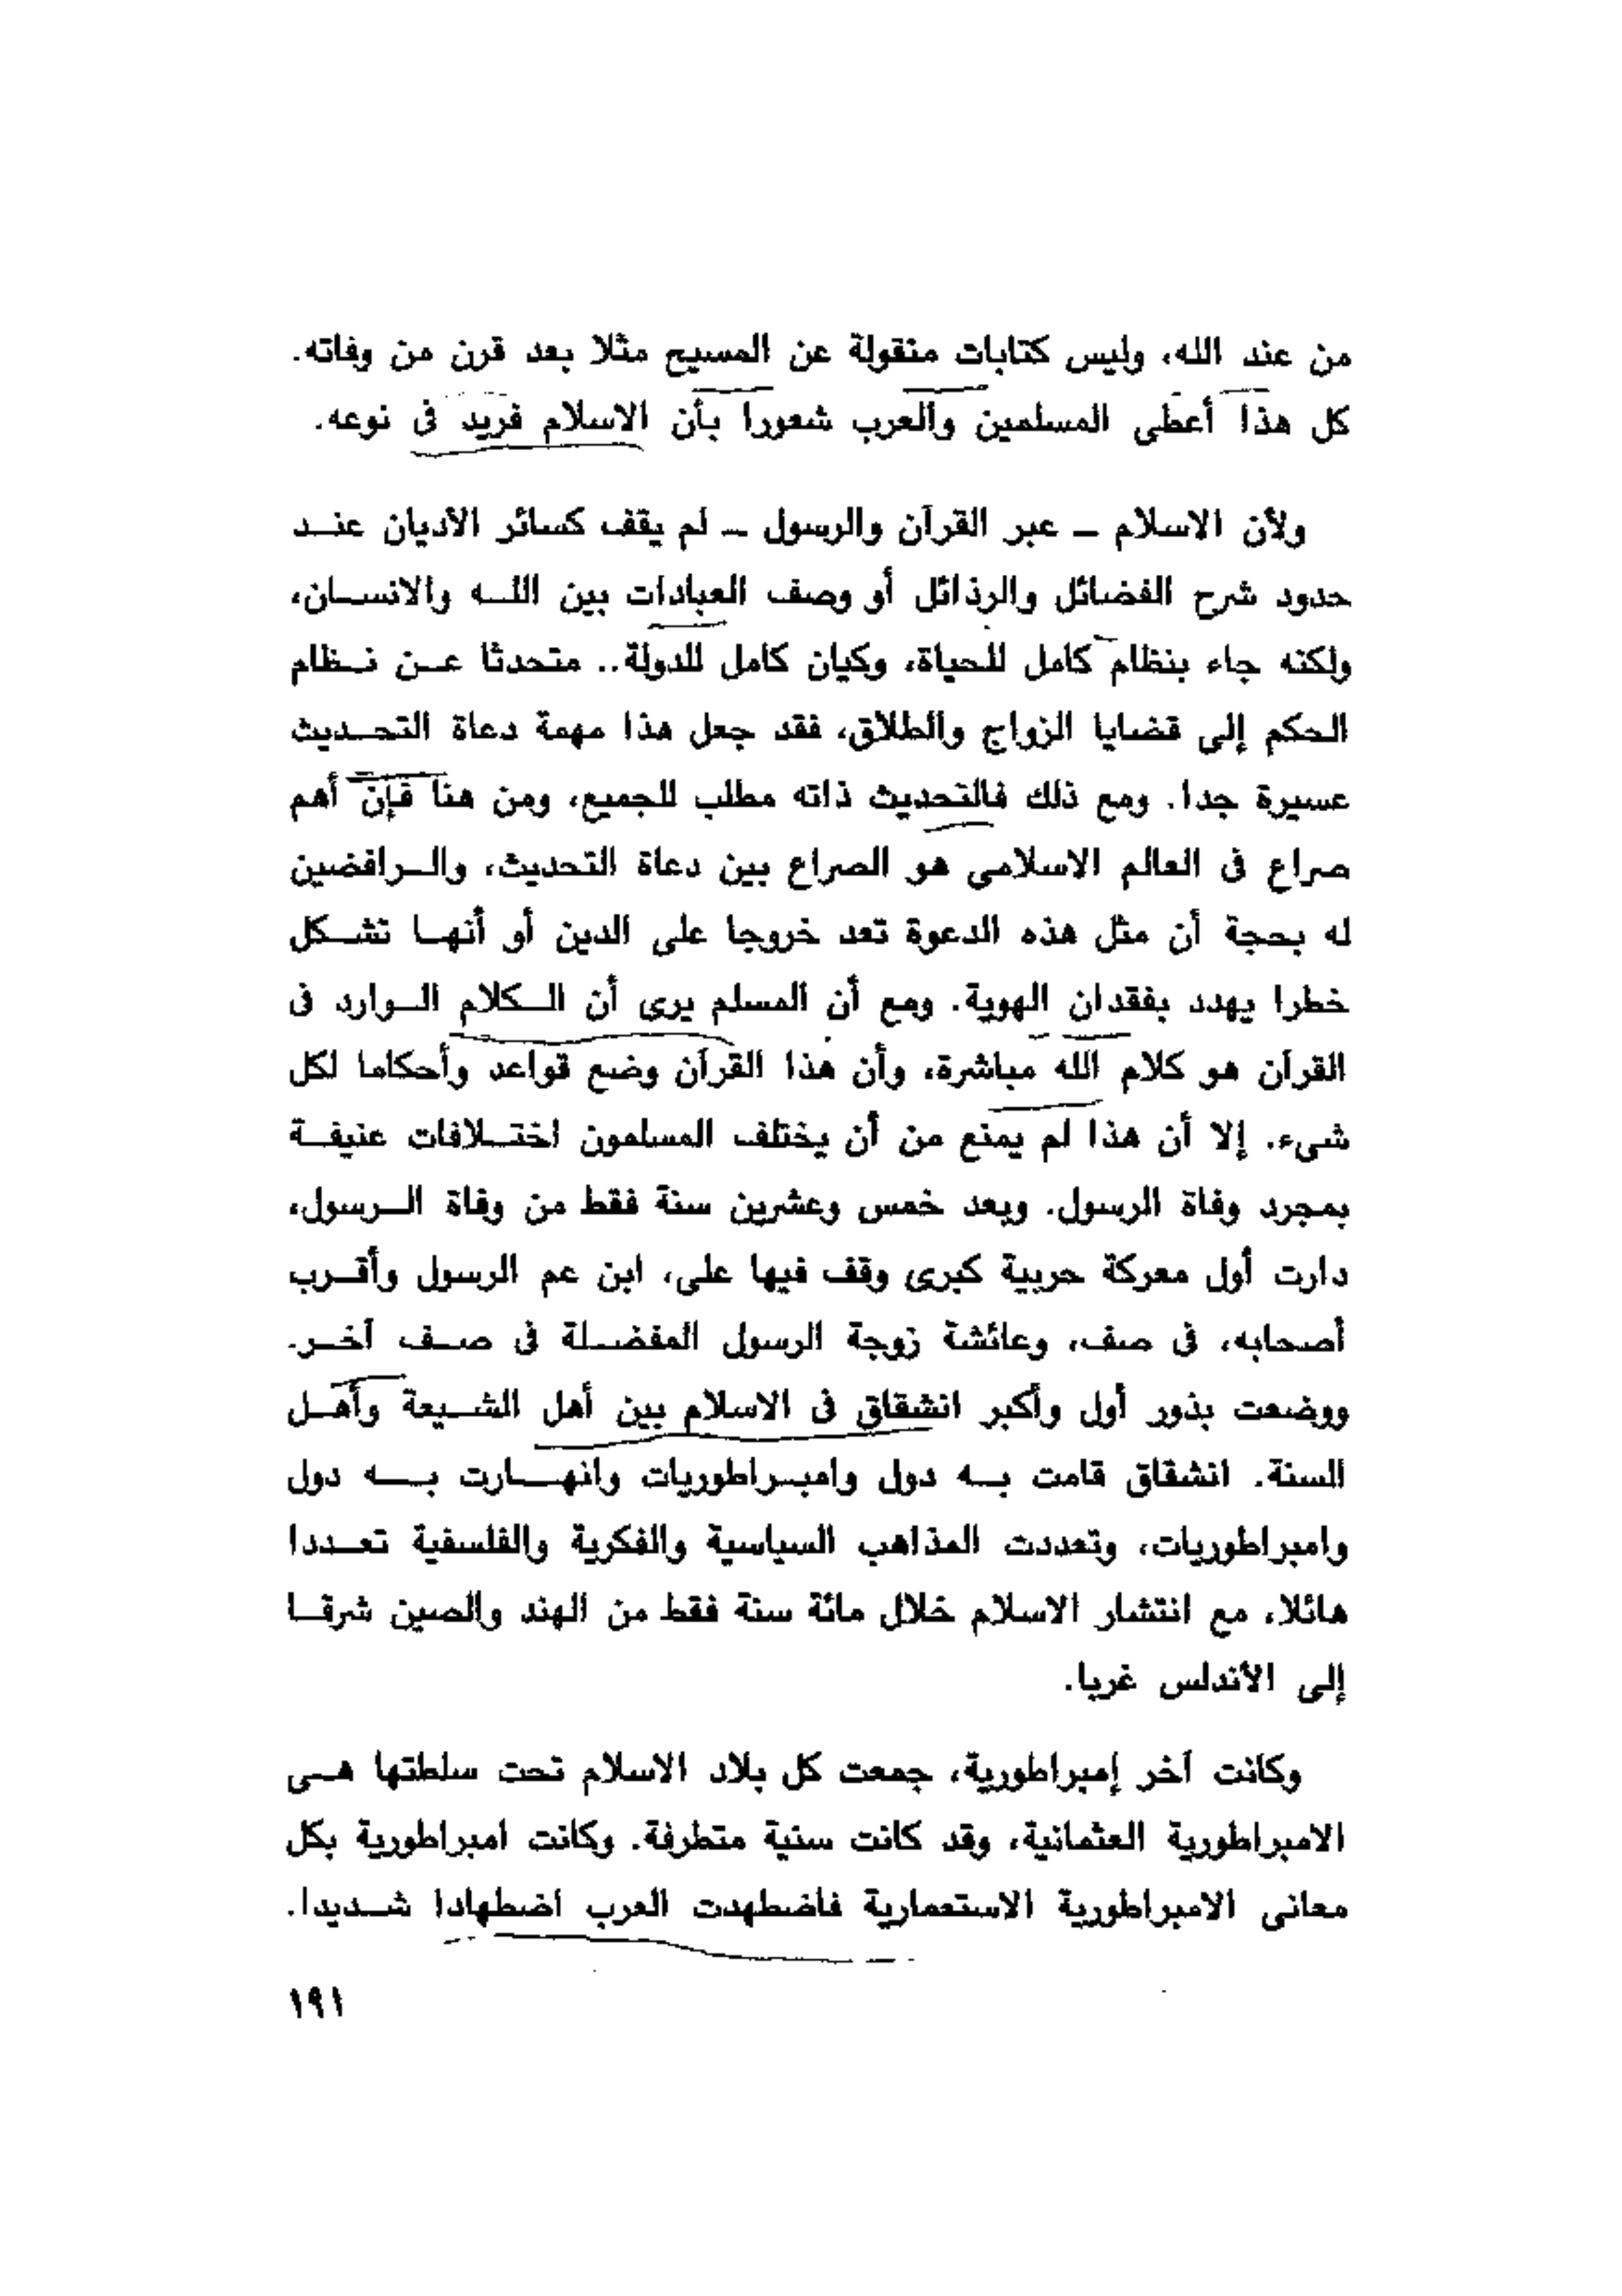 من عند الله، وليس كتابات منقولة عن المسيح مثلا بعد قرن من وفاته.
كل هذا أعطى المسلمين والعرب شعورا بأن الاسلام فريد فى نوعه.
ولأن الاسلام ــ عبر القرآن والرسول ــ لم يقف كسائر الأديان عنـد
حدود شرح الفضائل والرذائل أو وصف العبادات بين اللـه والانسـان،
ولكنه جاء بنظام كامل للحياة، وكيان كامل للدولة.. متحدثا عـن نـظام
الحكم إلى قضايا الزواج والطلاق، فقد جعل هذا مهمة دعاة التحـديث
عسيرة جدا. ومع ذلك فالتحديث ذاته مطلب للجميع، ومن هنا فإن أهم
صراع فى العالم الاسلامى هو الصراع بين دعاة التحديث، والـرافضين
له بحجة أن مثل هذه الدعوة تعد خروجا على الدين أو أنهـا تشـكل
خطرا يهدد بفقدان الهوية. ومع أن المسلم يرى أن الـكلام الـوارد فى
القرآن هو كلام الله مباشرة، وأن هذا القرآن وضع قواعد وأحكاما لكل
شىء. إلا أن هذا لم يمنع من أن يختلف المسلمون اختـلافات عنيفـة
بمجرد وفاة الرسول. وبعد خمس وعشرين سنة فقط من وفاة الـرسول،
دارت أول معركة حربية كبرى وقف فيها على، ابن عم الرسول وأقـرب
أصحابه، فى صف، وعائشة زوجة الرسول المفضـلة فى صـف آخـر.
ووضعت بذور أول وأكبر انشقاق فى الاسلام بين أهل الشـيعة وأهـل
السنة. انشقاق قامت بـه دول وامبـراطوريات وانهـارت بـه دول
وامبراطوريات، وتعددت المذاهب السياسية والفكرية والفلسفية تعـددا
هائلا، مع انتشار الاسلام خلال مائة سنة فقط من الهند والصين شرقـا
إلى الأندلس غربا.
وكانت آخر إمبراطورية، جمعت كل بلاد الاسلام تحت سلطتها هـى
الامبراطورية العثمانية، وقد كانت سنية متطرفة. وكانت امبراطورية بكل
معانى الامبراطورية الاستعمارية فاضطهدت العرب اضطهادا شـديدا.
١٩١